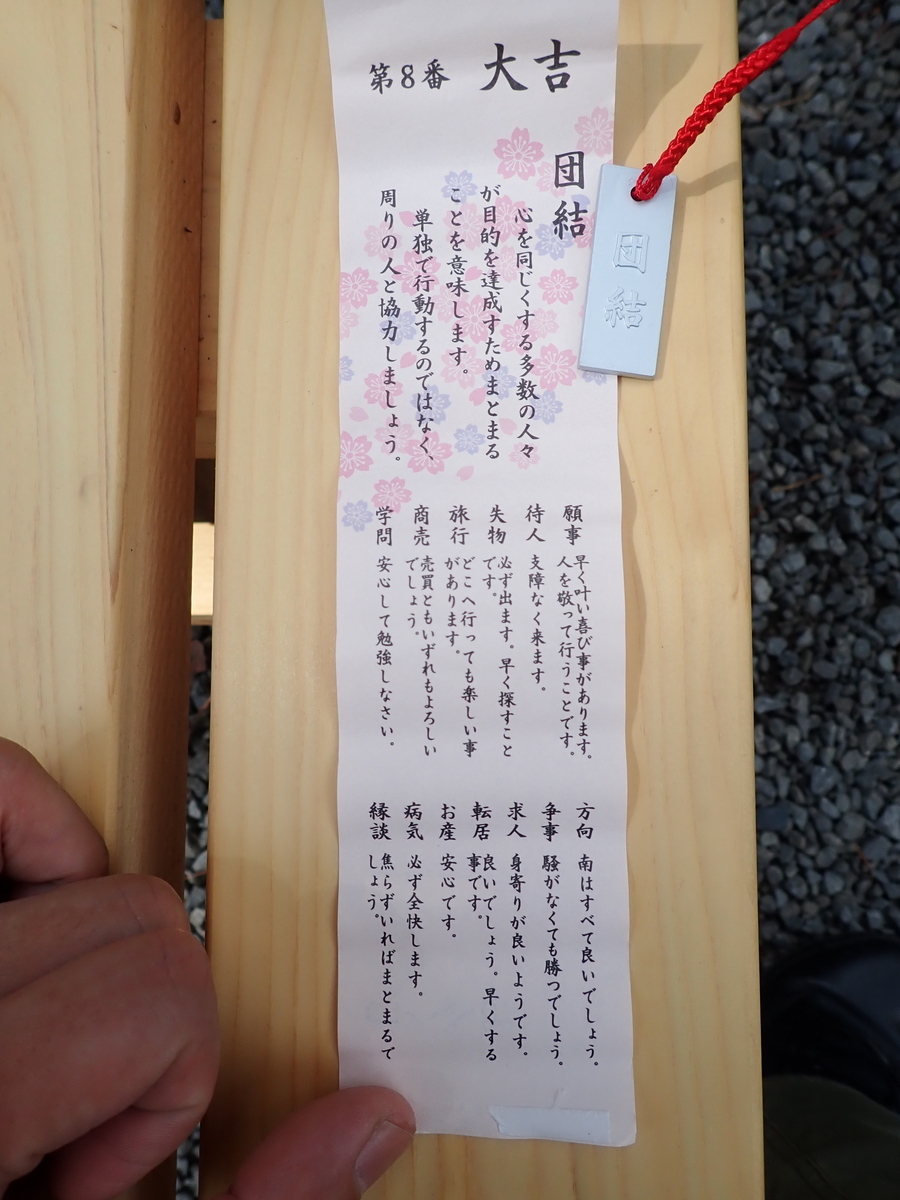 第8番 大吉
団結
心を同じくする多数の人々
が目的を達成すためまとまる
ことを意味します。
単独で行動するのではなく、
周りの人と協力しましょう。
願事 早く叶い喜び事があります。
人を敬って行うことです。
待人 支障なく来ます。
失物 必ず出ます。早く探すこと
です。
旅行 どこへ行っても楽しい事
があります。
商売 売買ともいずれもよろしい
でしょう。
学問 安心して勉強しなさい。
方向 南はすべて良いでしょう。
争事 騒がなくても勝つでしょう。
求人 身寄りが良いようです。
転居 良いでしょう。早くする
事です。
お産 安心です。
病気 必ず全快します。
縁談 焦らずいればまとまるで
しょう。
団結